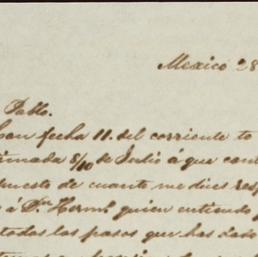 Mexico 28
Pablo.
con fecha 11. del corriente to
timada 8/10 de Julio á que con
puesto de cuanto me dices resp
á Dn. Herml. quien entiendo
todos los pasos que has dado